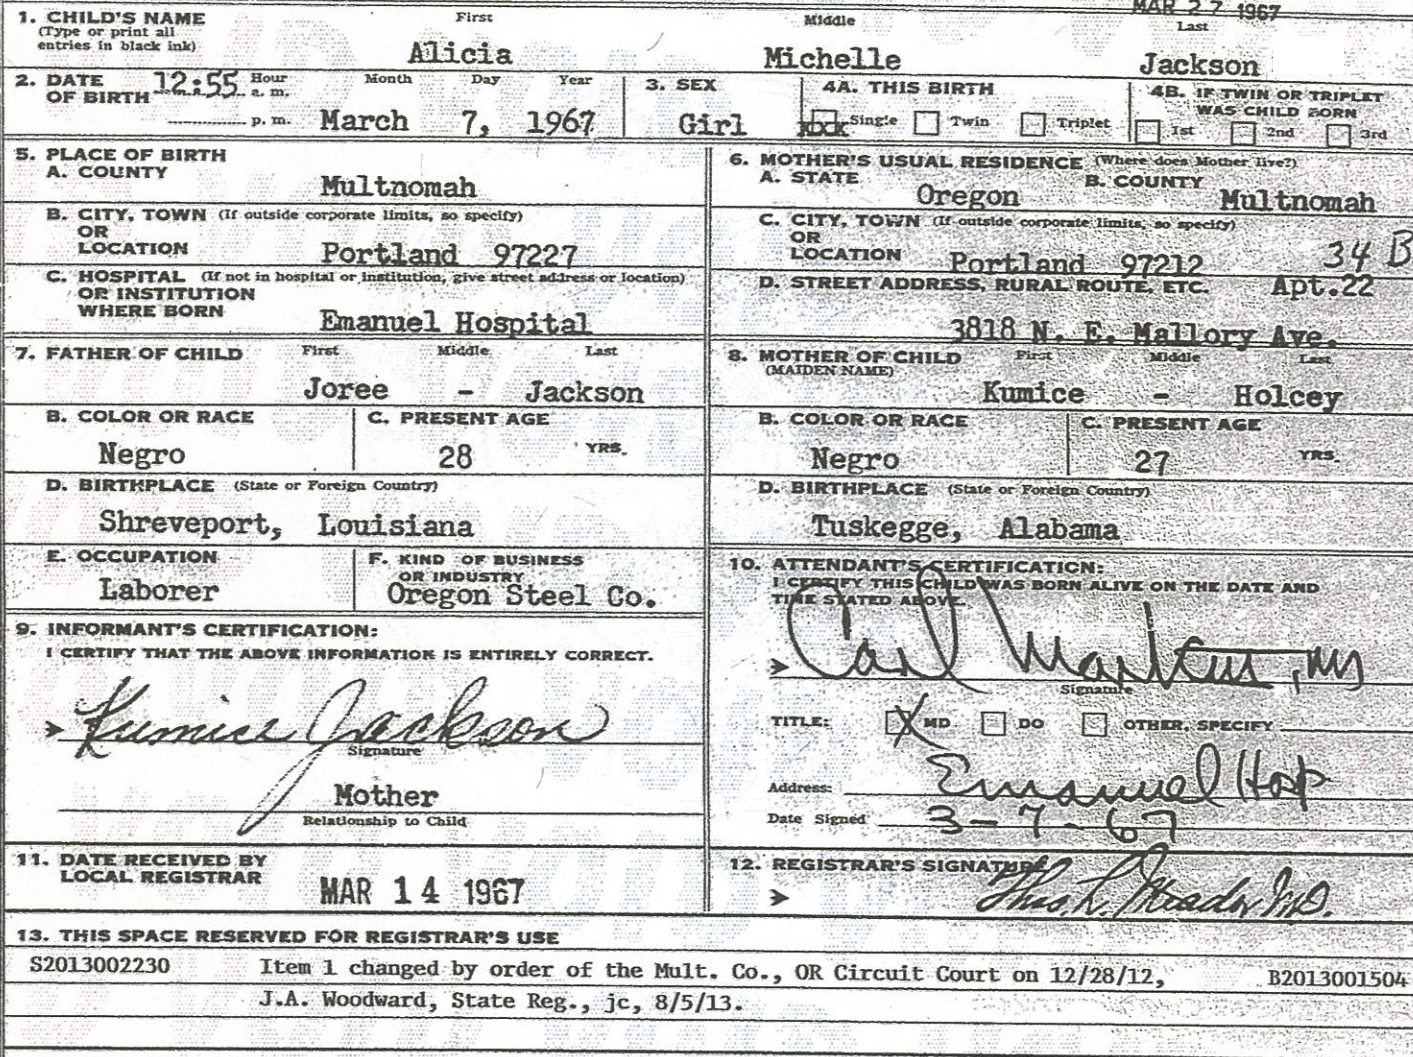 MAR 27 1967
1. CHILD'S NAME First Middle Last
(Type or print all
entries in black ink)
Alicia Michelle Jackson
2. DATE OF BIRTH 12:55 Hour a. m. Month Day Year
p. m. March 7, 1967
3. SEX
Girl
4A. THIS BIRTH
xxx Single Twin Triplet
4B. IF TWIN OR TRIPLET
WAS CHILD BORN
1st 2nd 3rd
5. PLACE OF BIRTH
A. COUNTY
Multnomah
B. CITY, TOWN (If outside corporate limits, so specify)
OR
LOCATION Portland 97227
C. HOSPITAL (If not in hospital or institution, give street address or location)
OR INSTITUTION
WHERE BORN Emanuel Hospital
6. MOTHER'S USUAL RESIDENCE (Where does Mother live?)
A. STATE Oregon B. COUNTY Multnomah
C. CITY, TOWN (If outside corporate limits, so specify)
OR
LOCATION Portland 97212 34 B
D. STREET ADDRESS, RURAL ROUTE, ETC. Apt.22
3818 N. E. Mallory Ave.
7. FATHER OF CHILD First Middle Last
Joree - Jackson
B. COLOR OR RACE C. PRESENT AGE
Negro 28 YRS.
D. BIRTHPLACE (State or Foreign Country)
Shreveport, Louisiana
E. OCCUPATION F. KIND OF BUSINESS
OR INDUSTRY
Laborer Oregon Steel Co.
8. MOTHER OF CHILD First Middle Last
(MAIDEN NAME)
Kumice - Holcey
B. COLOR OR RACE C. PRESENT AGE
Negro 27 YRS.
D. BIRTHPLACE (State or Foreign Country)
Tuskegge, Alabama
9. INFORMANT'S CERTIFICATION:
I CERTIFY THAT THE ABOVE INFORMATION IS ENTIRELY CORRECT.
Kumice Jackson
Signature
Mother
Relationship to Child
10. ATTENDANT'S CERTIFICATION:
I CERTIFY THIS CHILD WAS BORN ALIVE ON THE DATE AND
TIME STATED ABOVE.
Carl
Signature
TITLE: X MD DO OTHER, SPECIFY
Address: Emanuel Hosp
Date Signed 3-7-67
11. DATE RECEIVED BY
LOCAL REGISTRAR MAR 14 1967
12. REGISTRAR'S SIGNATURE
Thos. L. Meador M.D.
13. THIS SPACE RESERVED FOR REGISTRAR'S USE
S2013002230 Item 1 changed by order of the Mult. Co., OR Circuit Court on 12/28/12, B2013001504
J.A. Woodward, State Reg., jc, 8/5/13.